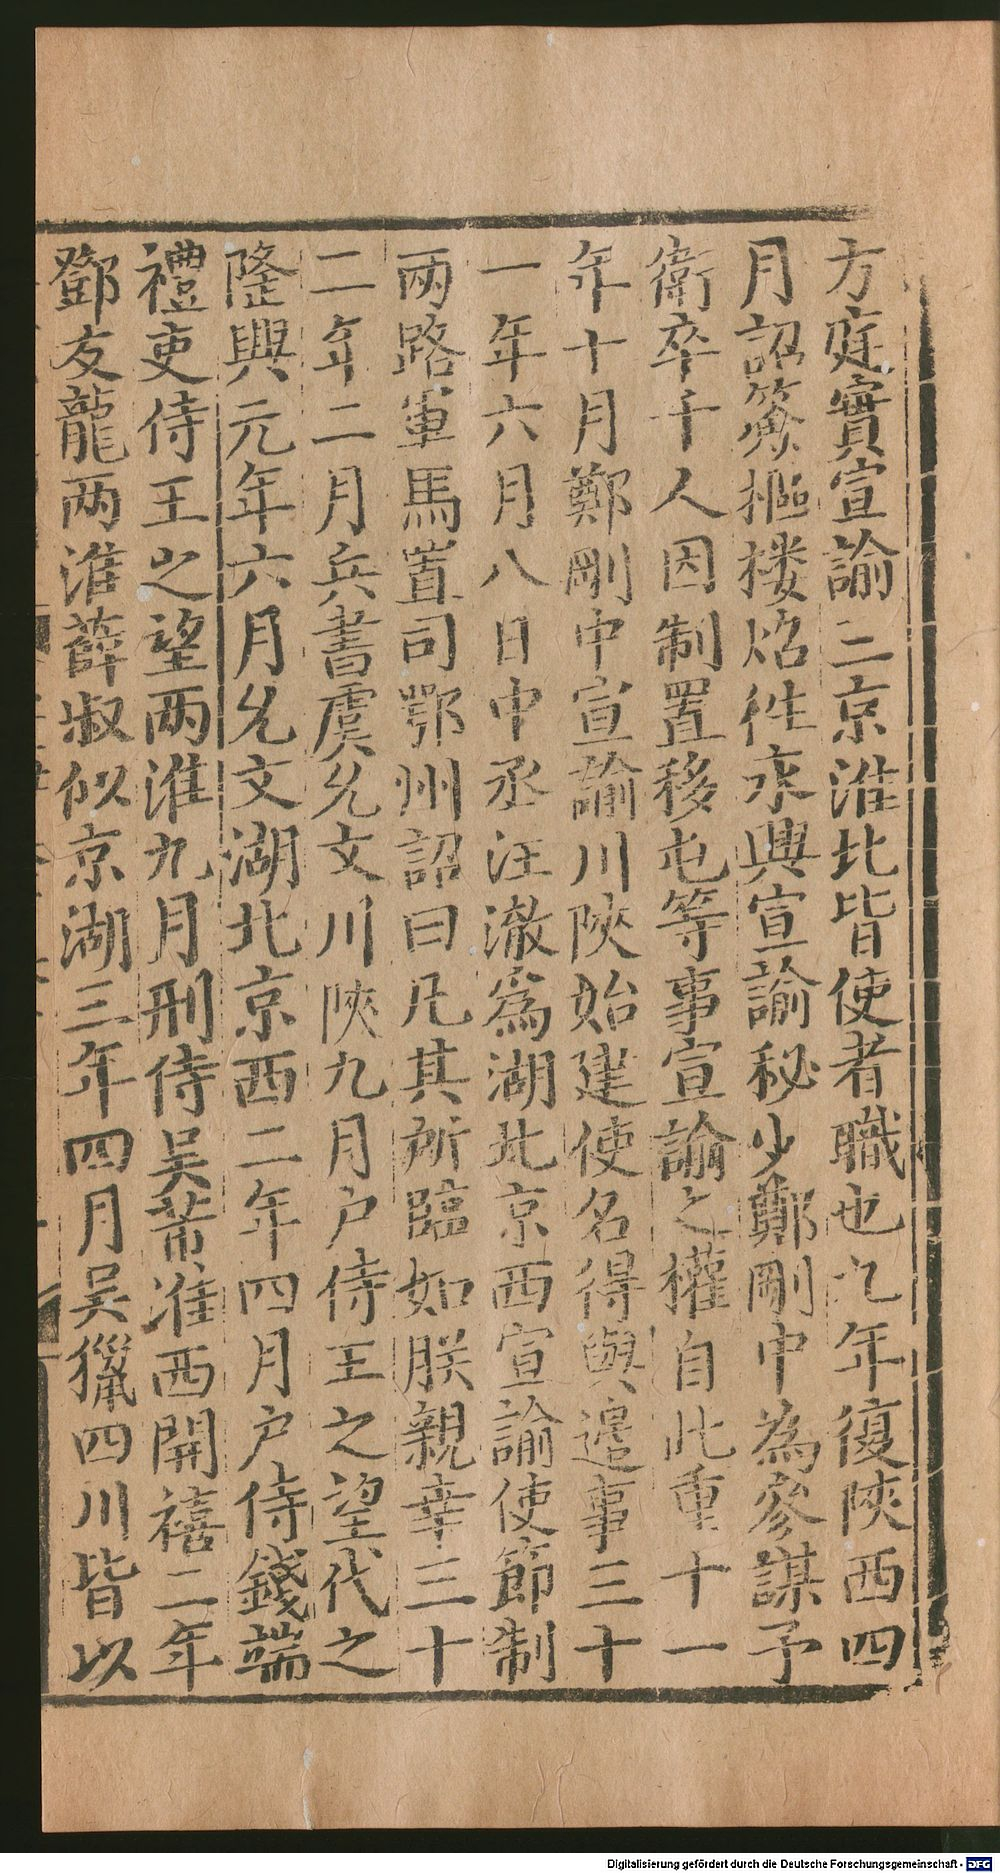 方庭實宣諭三京淮北皆使者職也九年復陝西四
月詔簽樞樓炤往永興宣諭秘少鄭剛中為參謀予
衛卒千人因制置移屯等事宣諭之權自此重十一
年十月鄭剛中宣諭川陝始建使名得與邊事三十
一年六月八日中丞汪澈為湖北京西宣諭使節制
兩路軍馬置司鄂州詔曰凡其所臨如朕親幸三十
二年二月兵書虞允文川陝九月户侍王之望代之
隆興元年六月允文湖北京西二年四月户侍錢端
禮吏侍王之望兩淮九月刑侍吳芾淮西開禧二年
鄧友龍两淮薛叔似京湖三年四月吳獵四川皆以
Digitalisierung gefördert durch die Deutsche Forschungsgemeinschaft - DFG